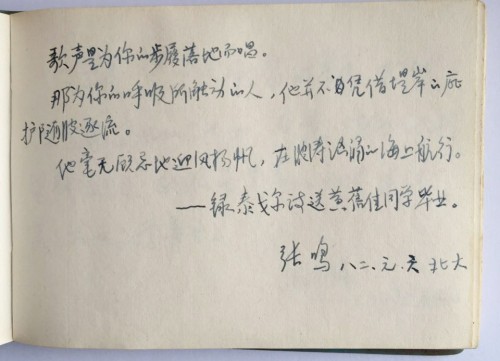 歌声是为你的步履落地而唱。
那为你的呼吸所触动的人，他并不曾凭借堤岸的庇
护随波逐流。
他毫无顾忌地迎风扬帆，在波涛汹涌的海上航行。
——录泰戈尔诗送黄蓓佳同学毕业。
张鸣 八二、元、 北大